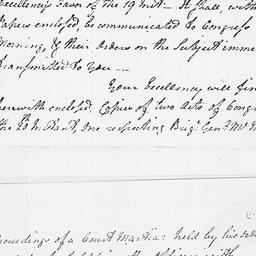 Excellency's Favor of the 19 Inst— It shall, with
Papers enclosed, be communicated to Congress
Morning, & their Orders on the Subject imme
transmitted to You —
Your Excellency will fin
herewith enclosed, Copies of two Acts of Congr
the 20 Instant, One respecting Brig: Gen:
roceedings of a Court Martial held by his